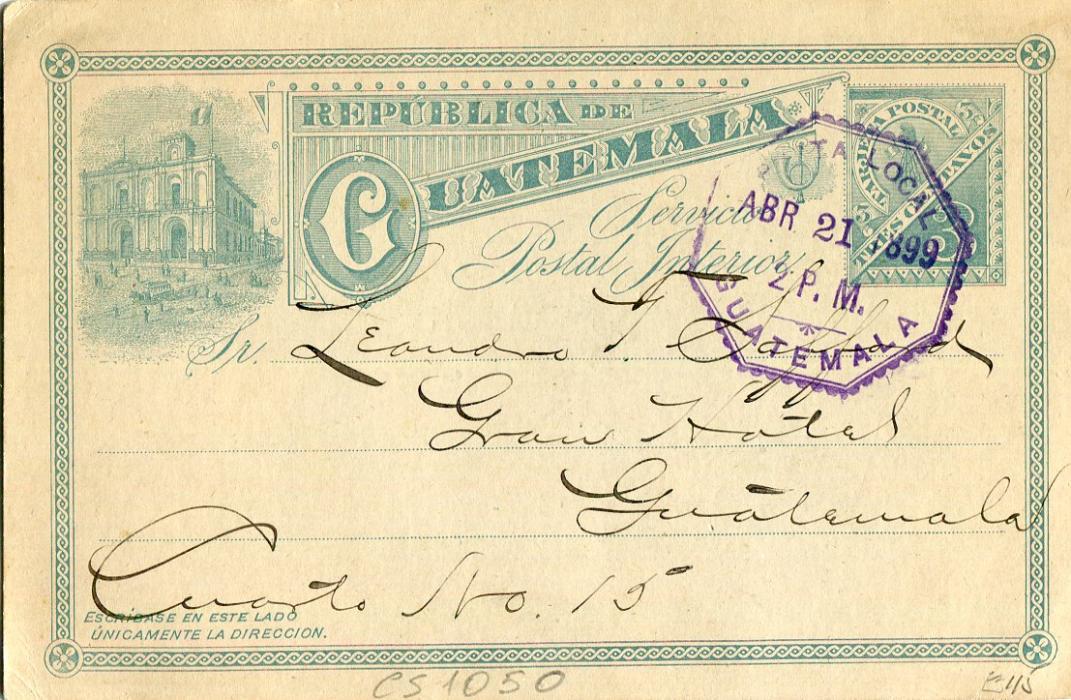 REPÚBLICA DE
GUATEMALA
Servicio
Postal Interior
TARJETA POSTAL
TRES CENTAVOS
3
TA LOCAL
ABR 21 1899
2 P. M.
GUATEMALA
Sr. Leandro T
Gran Hotel
Guatemala
Cuarto No. 15
ESCRÍBASE EN ESTE LADO
ÚNICAMENTE LA DIRECCION.
CS1050